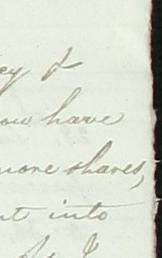 ey &
ou have
more shares,
t into
I